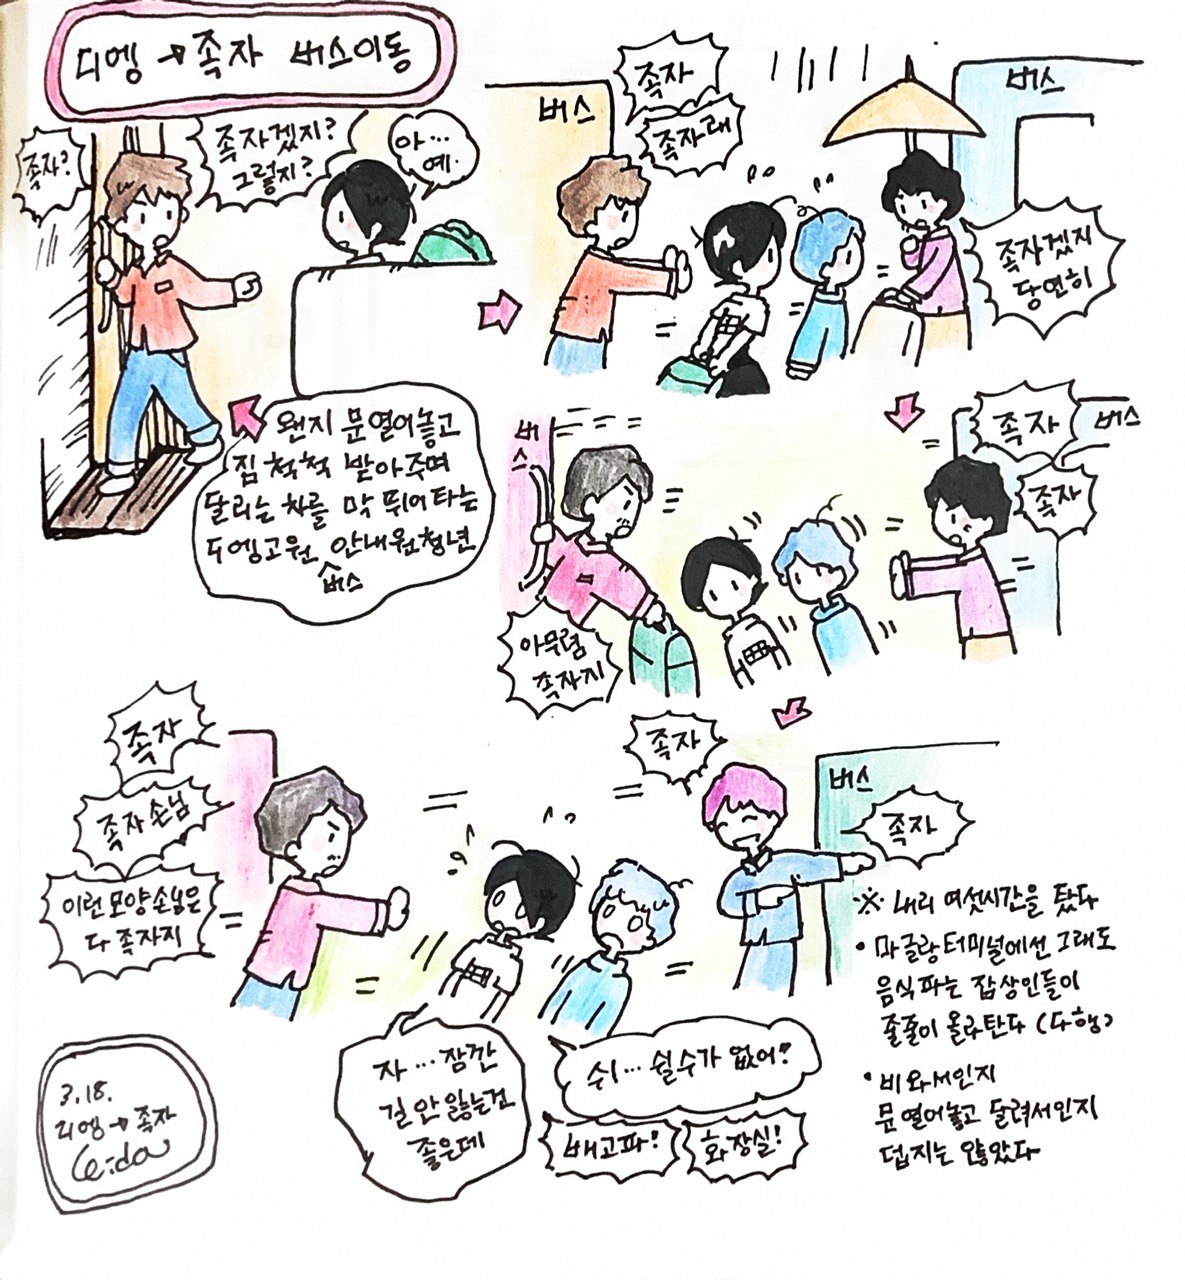 디엥 → 족자 버스이동
족자?
족자겠지?
그렇지?
아...
예.
왠지 문 열어놓고
짐 척척 받아주며
달리는 차를 막 뛰어 타는
디엥고원 안내원청년
버스
버스
족자
족자래
버스
족자겠지
당연히
버스
족자
족자
버
스
아무렴
족자지
족자
족자손님
이런 모양 손님은
다 족자지
족자
버스
족자
자...잠깐
길 안 잃는건
좋은데
쉬...쉴수가 없어?
배고파!
화장실!
※ 내리 여섯시간을 탔다
• 마글랑 터미널에선 그래도
음식 파는 잡상인들이
줄줄이 올라탄다 (다행)
• 비 와서인지
문 열어놓고 달려서인지
덥지는 않았다
3.18.
디엥→족자
Leida